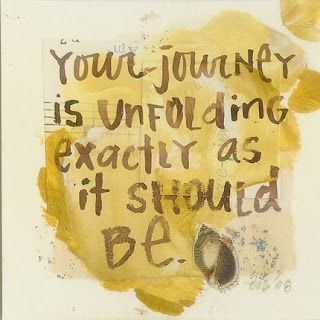 YOUR JOURNEY
is UNFOLDING
exactly as
it SHOULD
Be.